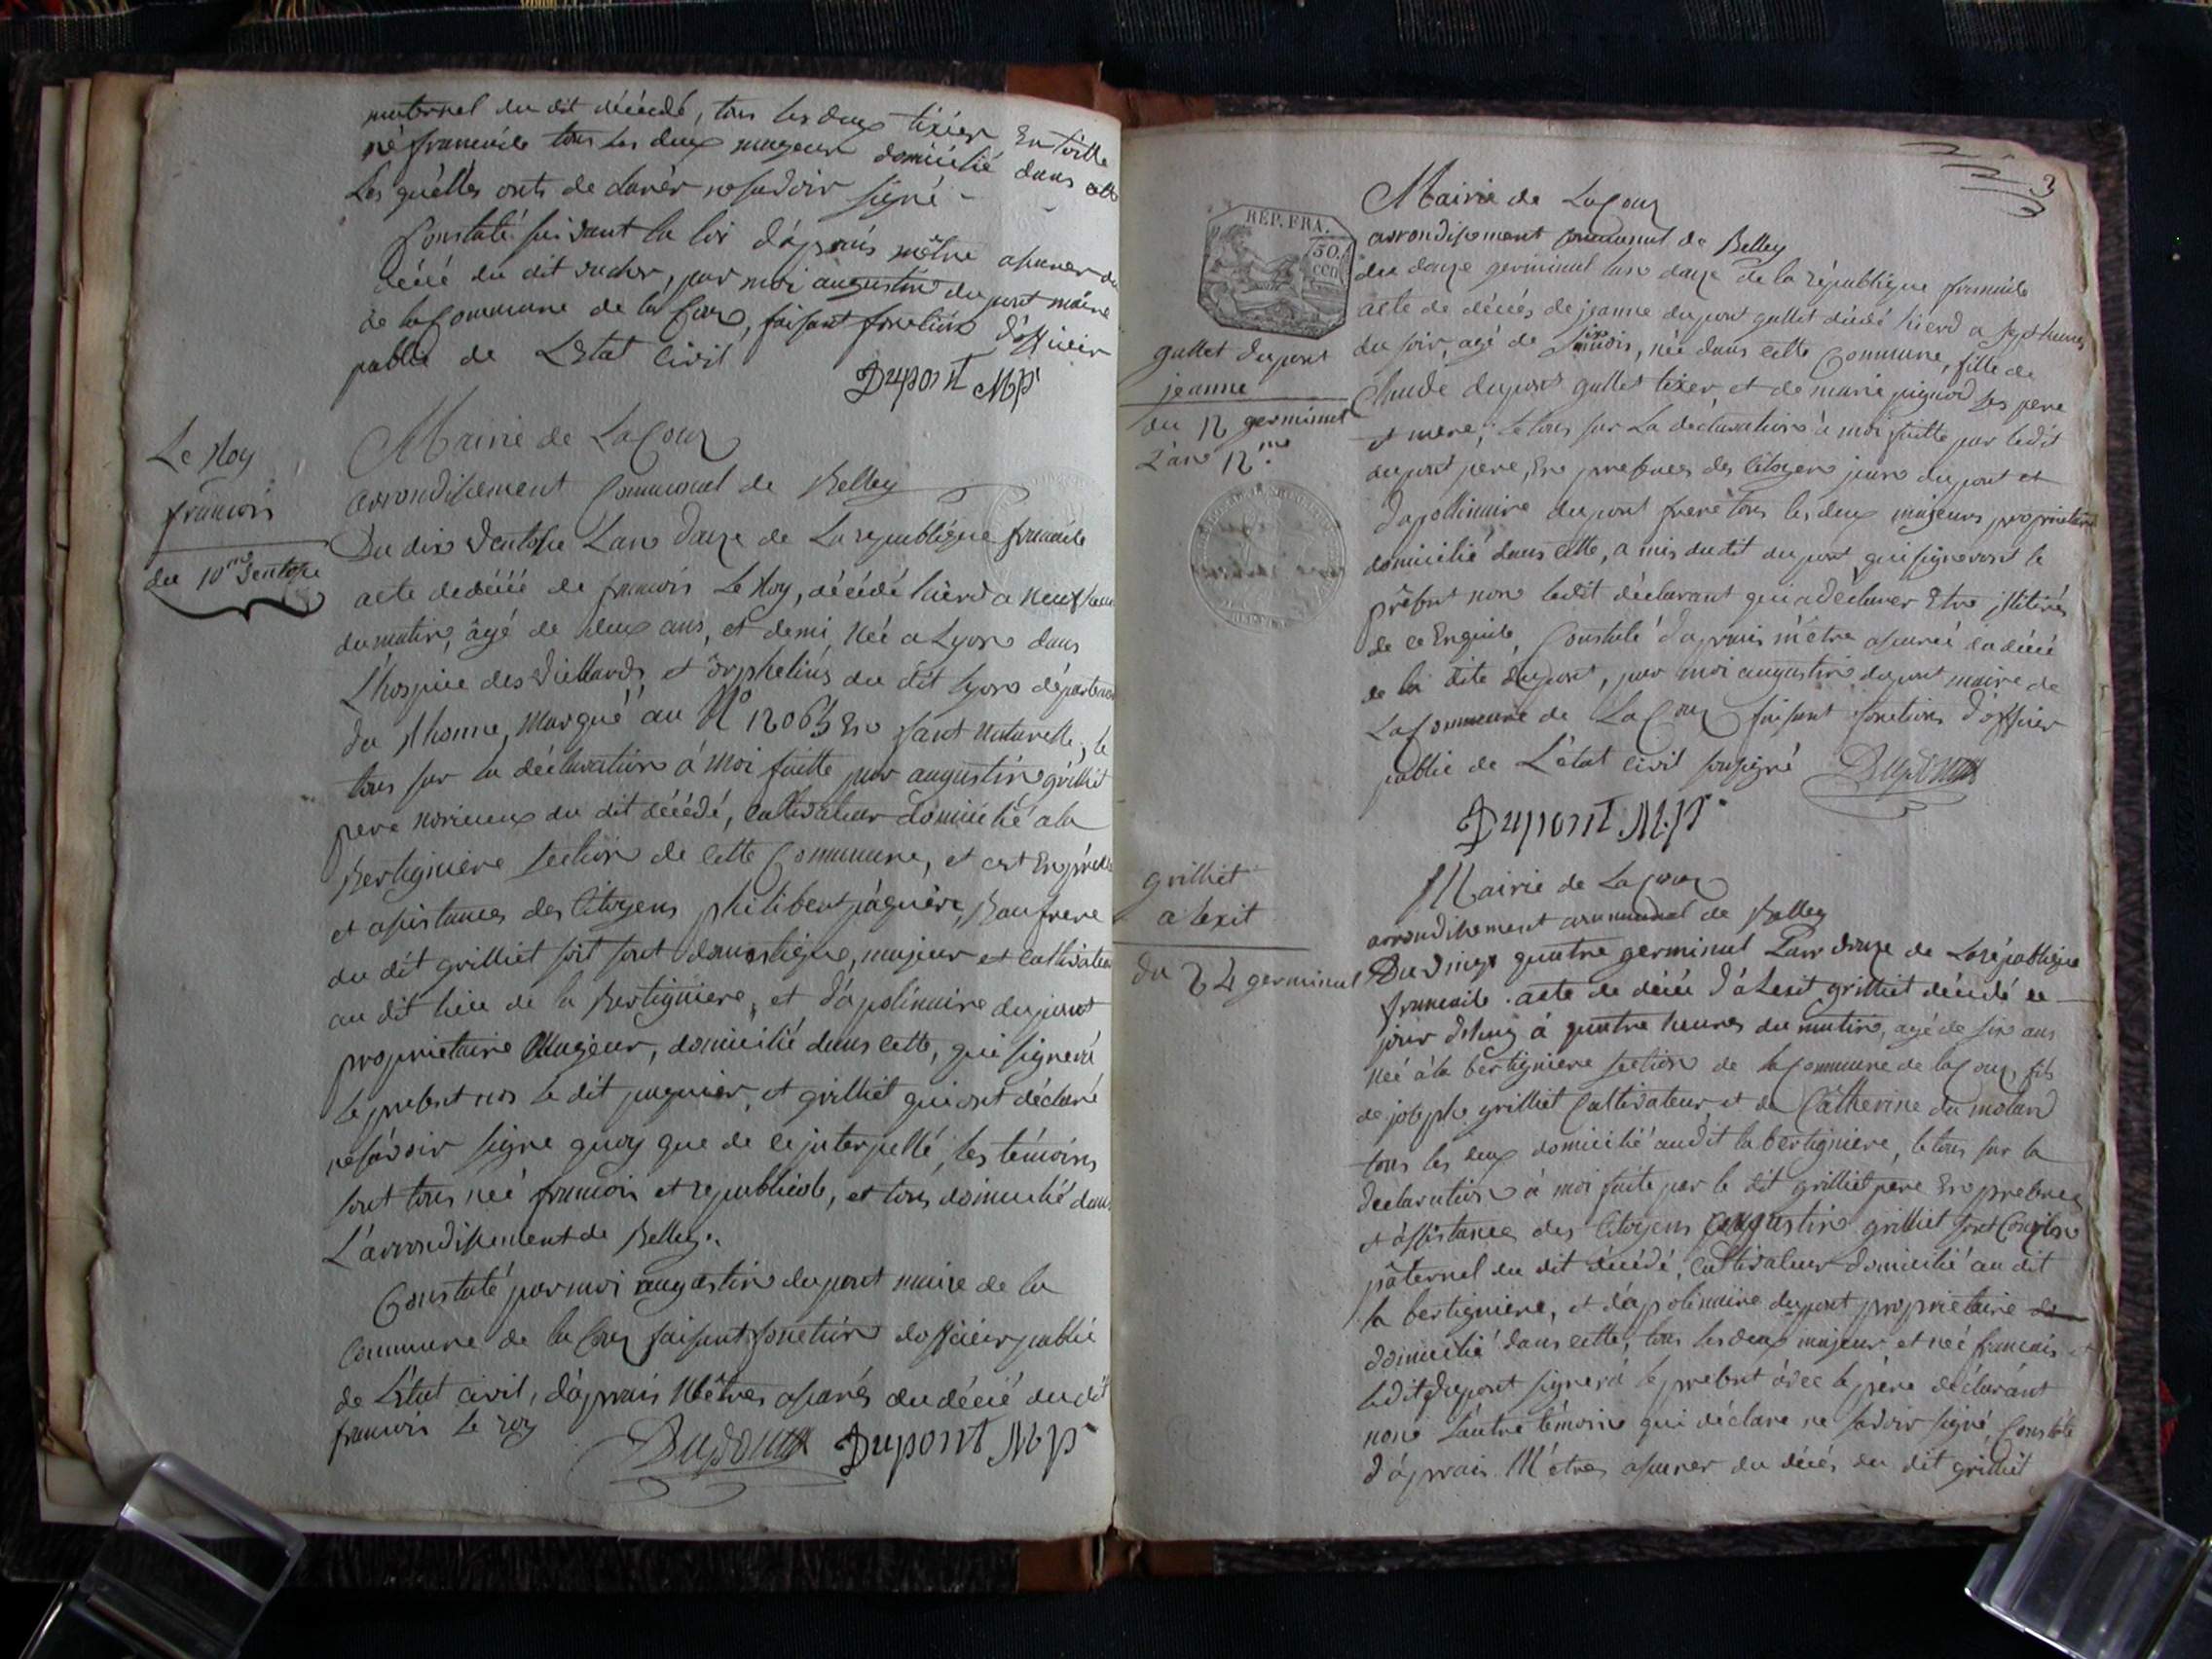 maternel du dit décédé, tous les deux tixier En toille
né francaile tous les deux mageur domicilié dans cette
Les quélles onts de clarér ne savoir signé -
Constaté suivant la loi d'aprais mêtre assurer du
décé du dit rucher, par moi augustin dupont maire
de la Commune de la Coux, faisant fonction d'officier
public de L'Etat Civil
Dupont MP
Le Roy
francois
du 10me ventose
Mairie de LaCoux
arrondissement Communal de Belley
Du dix ventose L'an douze de La republique francaile
acte dedécé de francois Le Roy, décédé hierd a neuf heures
du matin, âgé de deux ans, et demi, née a Lyon dans
L'hospice des viellards et orphelins du dit Lyon département
du Rhonne, marqué au N° 12065 En fant naturelle, le
tous sur la déclaration à moi faitte par augustin grilliet
pere noricieux du dit décédé, cultivateur domicilié a la
Bertigniere section de cette Commune, et cest En présence
et assistances des Citoyens philibert pagnier, Baufrere
du dit grilliet soit sont domestique, majeur et cultivateur
au dit lieu de la Bertigniere, et d'apolinaire dupont
proprietaire Majeur, domicilié dans cette, qui signera
le present non le dit pagnier, et grilliet qui ont déclaré
ne savoir signe quoy que de ce interpellé, les témoins
sont tous née francois et republicole, et tous domicilié dans
L'arrondissement de Belley.
Constaté par moi augustin dupont maire de la
Commune de la Coux faisant fonction dofficier public
de L'Etat civil, d'aprais M'êtres assurés du décé du dit
francois Le roy
Dupont Dupont MP
3
REP. FRA.
50.
CEN
gallet dupont
jeanne
du 12 germinal
L'an 12.me
Mairie de LaCoux
arrondissement Communal de Belley
du douze germinal lan douze de la république francaile
acte de décés de jeanne dupont gallet décédé hierd a sept heures
du soir, agé de six mois, née dans cette Commune, fille de
Claude dupont gallet tixer, et de marie pignod ses pere
et mere; le tous sur La déclaration à moi faitte par ledit
dupont pere, En presences des Citoyen dupont et
d'apollinaire dupont frere tous les deux majeurs proprietaire
domicilié dans cette, a mis dudit dupont qui signeront le
présent non ledit déclarant qui a déclarer Etre illitéré
de ce Enquile, Constaté d'aprais m'être assuré du décé
de la dite dupont, par moi augustin dupont maire de
La Commune de LaCoux faisant fonctions d'officier
public de L'état civil sousigné Dupont
Dupont M.P.
grilliet
alexit
du 24 germinal
Mairie de LaCoux
arrondissement communal de Belley
Du vingt quatre germinal L'an douze de La république
francaile. acte de décé d'alexit grilliet décédé ce
jour dhuy à quatre heures du matin, agé de six ans
née à la bertigniere section de la Commune de la Coux, fils
de joseph grilliet Cultivateur et de Catherine du molard
tous les deux domicilié audit la bertigniere, le tous sur la
declaration à moi faite par le dit grilliet pere En presences
et assistances des Citoyens augustin grilliet sont
pâternel du dit décédé, Cultivateur domicilié au dit
la bertigniere, et d'apolinaire dupont proprietaire
domicilié dans cette, tous les deux majeur, et née francais et
ledit dupont signera le present avec le père déclarant
non l'autre témoin qui déclare ne savoir signé, Constaté
d'aprais M'êtres assurer du décés du dit grilliet